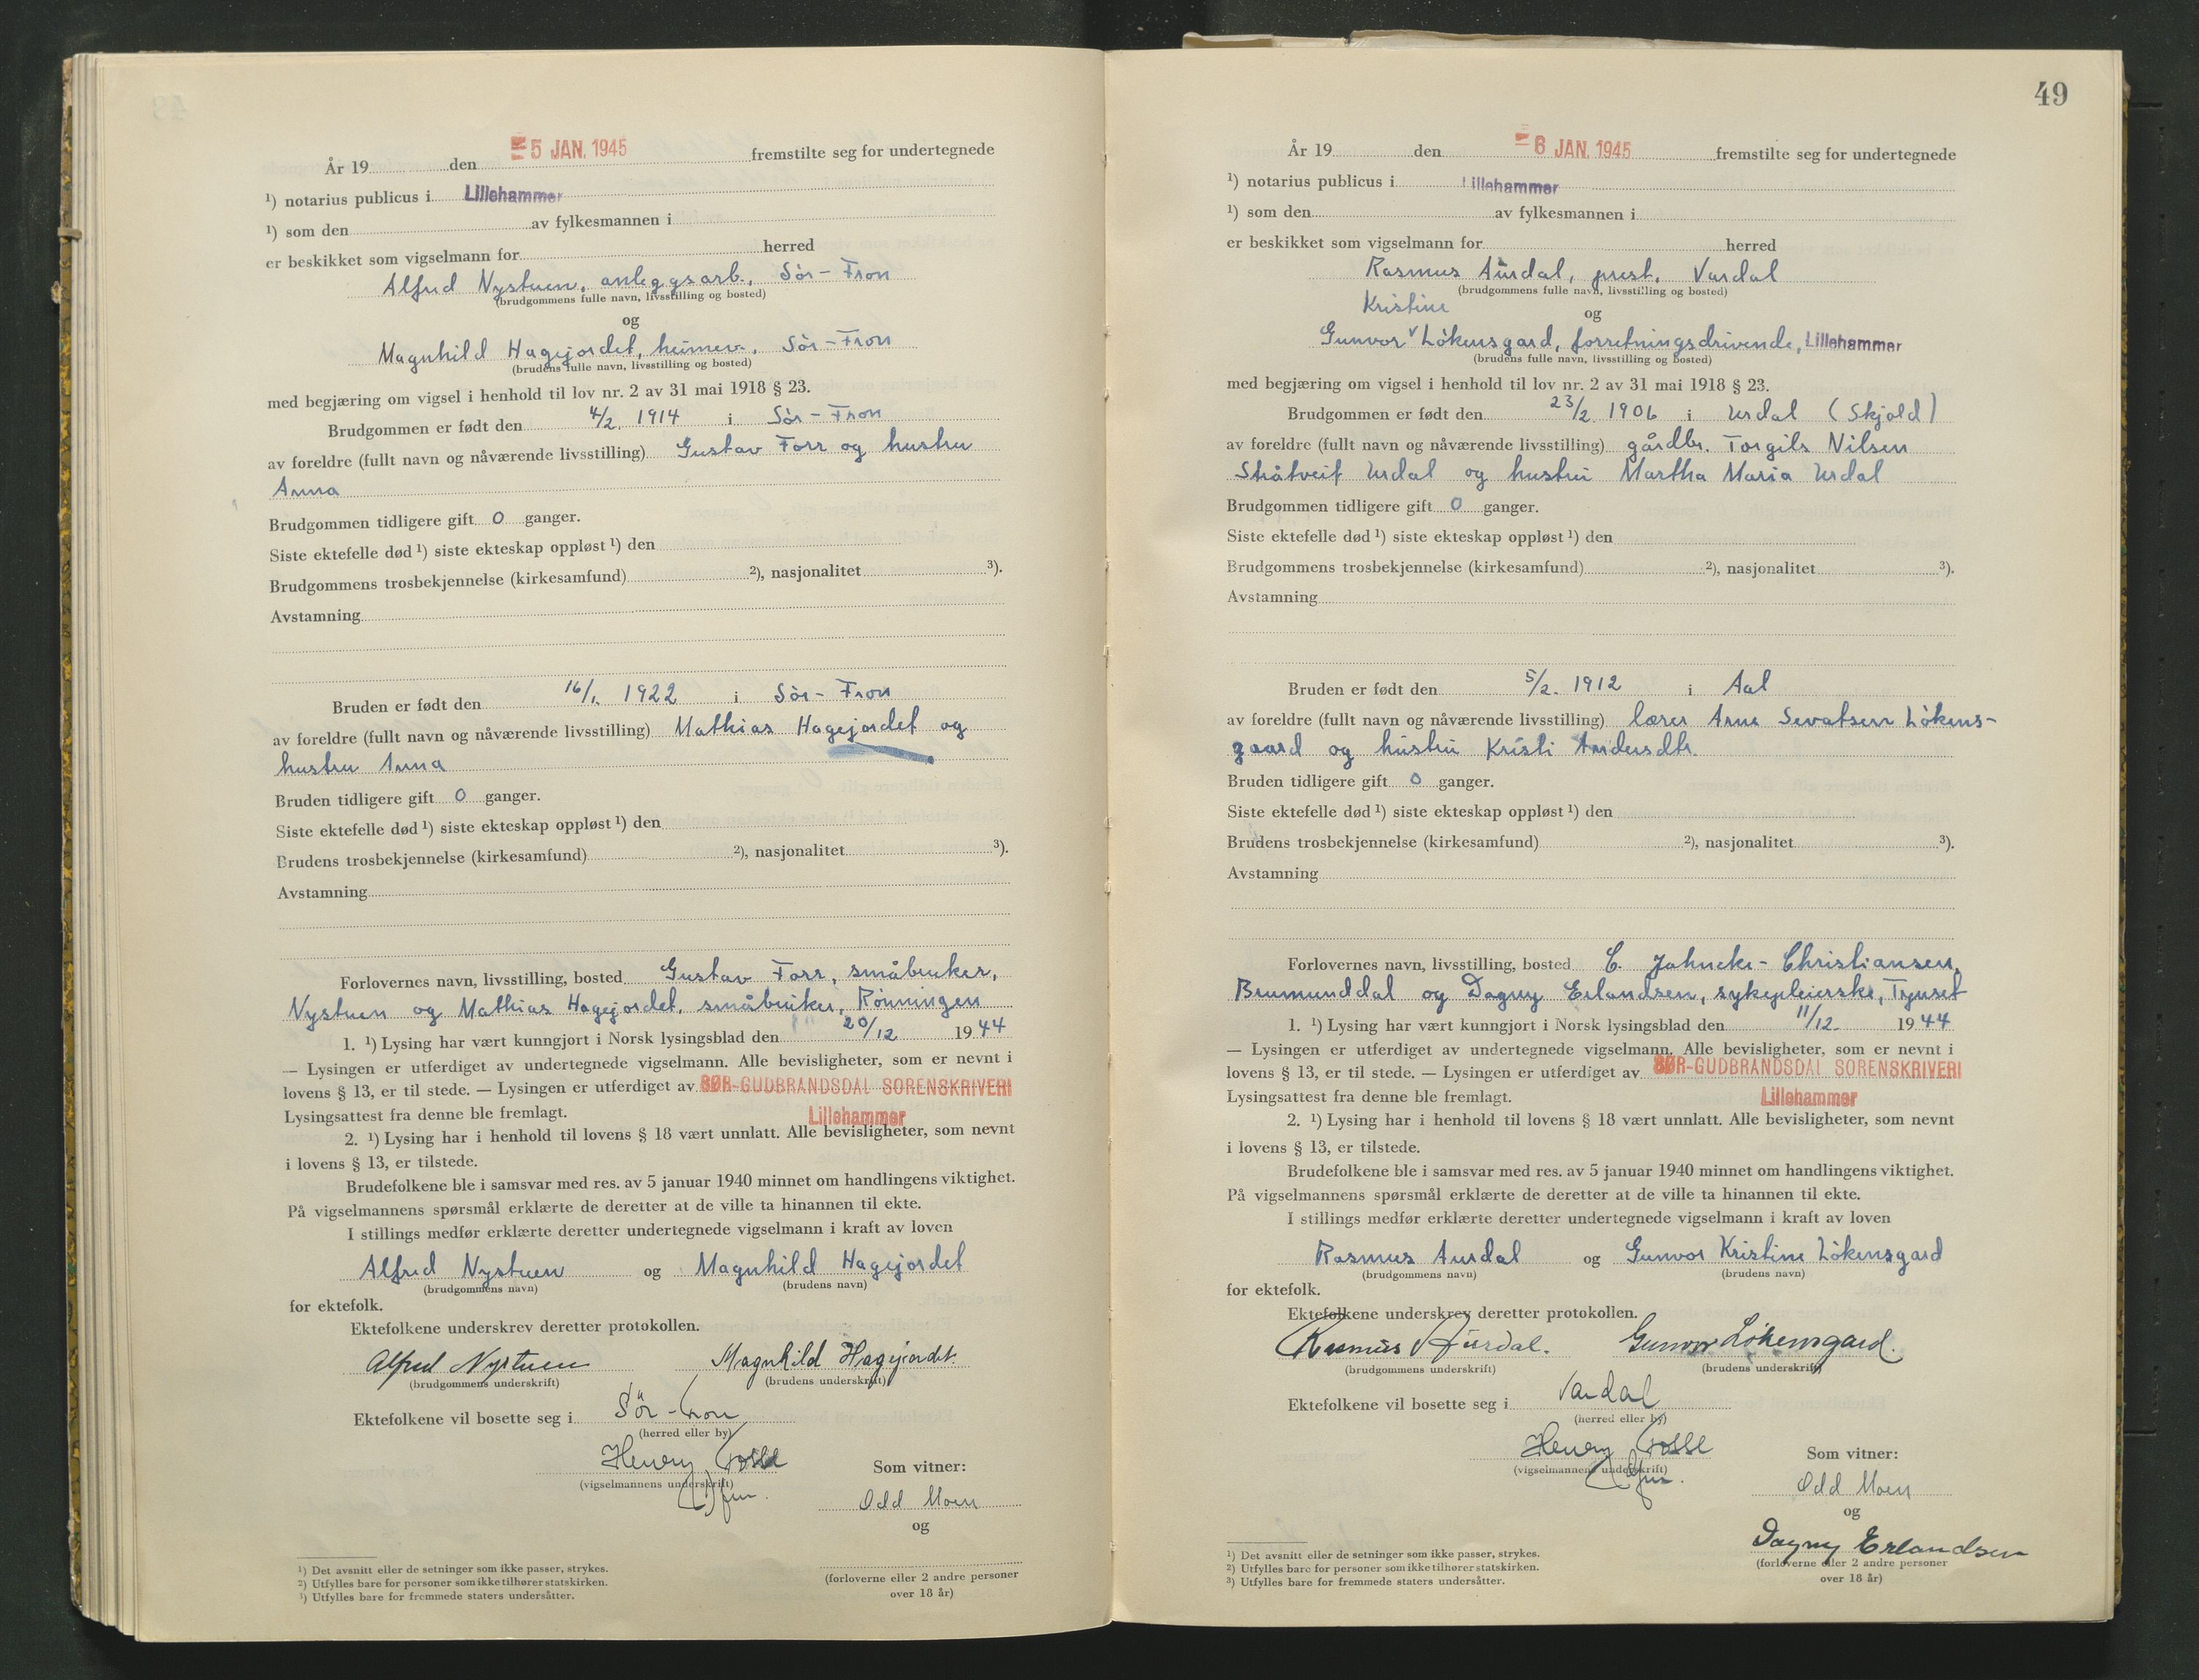 År 19 den 5 JAN. 1945 fremstilte seg for undertegnede
¹) notarius publicus i Lillehammer
¹) som den av fylkesmannen i
er beskikket som vigselmann for herred
Alfred Nystuen, anleggsarb., Sör-Fron
(brudgommens fulle navn, livsstilling og bosted)
og
Magnhild Hagejordet, heimev., Sör-Fron
(brudens fulle navn, livsstilling og bosted)
med begjæring om vigsel i henhold til lov nr. 2 av 31 mai 1918 § 23.
Brudgommen er født den 4/2. 1914 i Sör-Fron
av foreldre (fullt navn og nåværende livsstilling) Gustav Forr og hustru
Anna
Brudgommen tidligere gift 0 ganger.
Siste ektefelle død ¹) siste ekteskap oppløst ¹) den
Brudgommens trosbekjennelse (kirkesamfund) ²), nasjonalitet ³).
Avstamning
Bruden er født den 16/1. 1922 i Sör-Fron
av foreldre (fullt navn og nåværende livsstilling) Mathias Hagejordet og
hustru Anna
Bruden tidligere gift 0 ganger.
Siste ektefelle død ¹) siste ekteskap oppløst ¹) den
Brudens trosbekjennelse (kirkesamfund) ²), nasjonalitet ³).
Avstamning
Forlovernes navn, livsstilling, bosted Gustav Forr, småbruker,
Nystuen og Mathias Hagejordet, småbruker, Rönningen
1. ¹) Lysing har vært kunngjort i Norsk lysingsblad den 20/12 1944
— Lysingen er utferdiget av undertegnede vigselmann. Alle bevisligheter, som er nevnt i
lovens § 13, er til stede. — Lysingen er utferdiget av SØR-GUDBRANDSDAL SORENSKRIVERI
Lysingsattest fra denne ble fremlagt. Lillehammer
2. ¹) Lysing har i henhold til lovens § 18 vært unnlatt. Alle bevisligheter, som nevnt
i lovens § 13, er tilstede.
Brudefolkene ble i samsvar med res. av 5 januar 1940 minnet om handlingens viktighet.
På vigselmannens spørsmål erklærte de deretter at de ville ta hinannen til ekte.
I stillings medfør erklærte deretter undertegnede vigselmann i kraft av loven
Alfred Nystuen og Magnhild Hagejordet
(brudgommens navn) (brudens navn)
for ektefolk.
Ektefolkene underskrev deretter protokollen.
Alfred Nystuen Magnhild Hagejordet.
(brudgommens underskrift) (brudens underskrift)
Ektefolkene vil bosette seg i Sör-Fron
(herred eller by)
Henry
(vigselmannens underskrift) Som vitner:
Odd Moen
og
(forloverne eller 2 andre personer
over 18 år)
¹) Det avsnitt eller de setninger som ikke passer, strykes.
²) Utfylles bare for personer som ikke tilhører statskirken.
³) Utfylles bare for fremmede staters undersåtter.
49
År 19 den 6 JAN. 1945 fremstilte seg for undertegnede
¹) notarius publicus i Lillehammer
¹) som den av fylkesmannen i
er beskikket som vigselmann for herred
Rasmus Aurdal, prest, Vardal
(brudgommens fulle navn, livsstilling og bosted)
Kristine
og
Gunvor ᵛ Lökensgard, forretningsdrivende, Lillehammer
(brudens fulle navn, livsstilling og bosted)
med begjæring om vigsel i henhold til lov nr. 2 av 31 mai 1918 § 23.
Brudgommen er født den 23/2. 1906 i Urdal (Skjold)
av foreldre (fullt navn og nåværende livsstilling) gårdbr. Torgils Nilsen
Stråtveit Urdal og hustru Martha Maria Urdal
Brudgommen tidligere gift 0 ganger.
Siste ektefelle død ¹) siste ekteskap oppløst ¹) den
Brudgommens trosbekjennelse (kirkesamfund) ²), nasjonalitet ³).
Avstamning
Bruden er født den 5/2. 1912 i Aal
av foreldre (fullt navn og nåværende livsstilling) lærer Arne Sevatsen Lökens-
gaard og hustru Kristi Andersdtr.
Bruden tidligere gift 0 ganger.
Siste ektefelle død ¹) siste ekteskap oppløst ¹) den
Brudens trosbekjennelse (kirkesamfund) ²), nasjonalitet ³).
Avstamning
Forlovernes navn, livsstilling, bosted C. Jahncke-Christiansen,
Brumunddal og Dagny Erlandsen, sykepleierske, Tynset
1. ¹) Lysing har vært kunngjort i Norsk lysingsblad den 11/12. 1944
— Lysingen er utferdiget av undertegnede vigselmann. Alle bevisligheter, som er nevnt i
lovens § 13, er til stede. — Lysingen er utferdiget av SØR-GUDBRANDSDAL SORENSKRIVERI
Lysingsattest fra denne ble fremlagt. Lillehammer
2. ¹) Lysing har i henhold til lovens § 18 vært unnlatt. Alle bevisligheter, som nevnt
i lovens § 13, er tilstede.
Brudefolkene ble i samsvar med res. av 5 januar 1940 minnet om handlingens viktighet.
På vigselmannens spørsmål erklærte de deretter at de ville ta hinannen til ekte.
I stillings medfør erklærte deretter undertegnede vigselmann i kraft av loven
Rasmus Aurdal og Gunvor Kristine Lökensgard
(brudgommens navn) (brudens navn)
for ektefolk.
Ektefolkene underskrev deretter protokollen.
Rasmus Aurdal. Gunvor Lökensgard.
(brudgommens underskrift) (brudens underskrift)
Ektefolkene vil bosette seg i Vardal
(herred eller by)
Henry
(vigselmannens underskrift) Som vitner:
Odd Moen
og
Dagny Erlandsen
(forloverne eller 2 andre personer
over 18 år)
¹) Det avsnitt eller de setninger som ikke passer, strykes.
²) Utfylles bare for personer som ikke tilhører statskirken.
³) Utfylles bare for fremmede staters undersåtter.